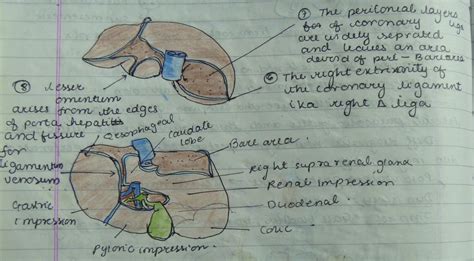 ⑦ The peritonial layers
for of coronary liga
are widely seprated
and leaves an area
devoid of peri - Barearea
⑥ The right extrimity of
the coronary ligament
is ka right Δ liga
⑧ lesser
omentum
arises from the edges
of porta hepatis
and fissure
for
ligamentum
venosum
Oesophageal
caudate
lobe
Bare area
Right suprarenal gland
Renal impression
Duodenal
Colic
Gastric
impression
Pyloric impression